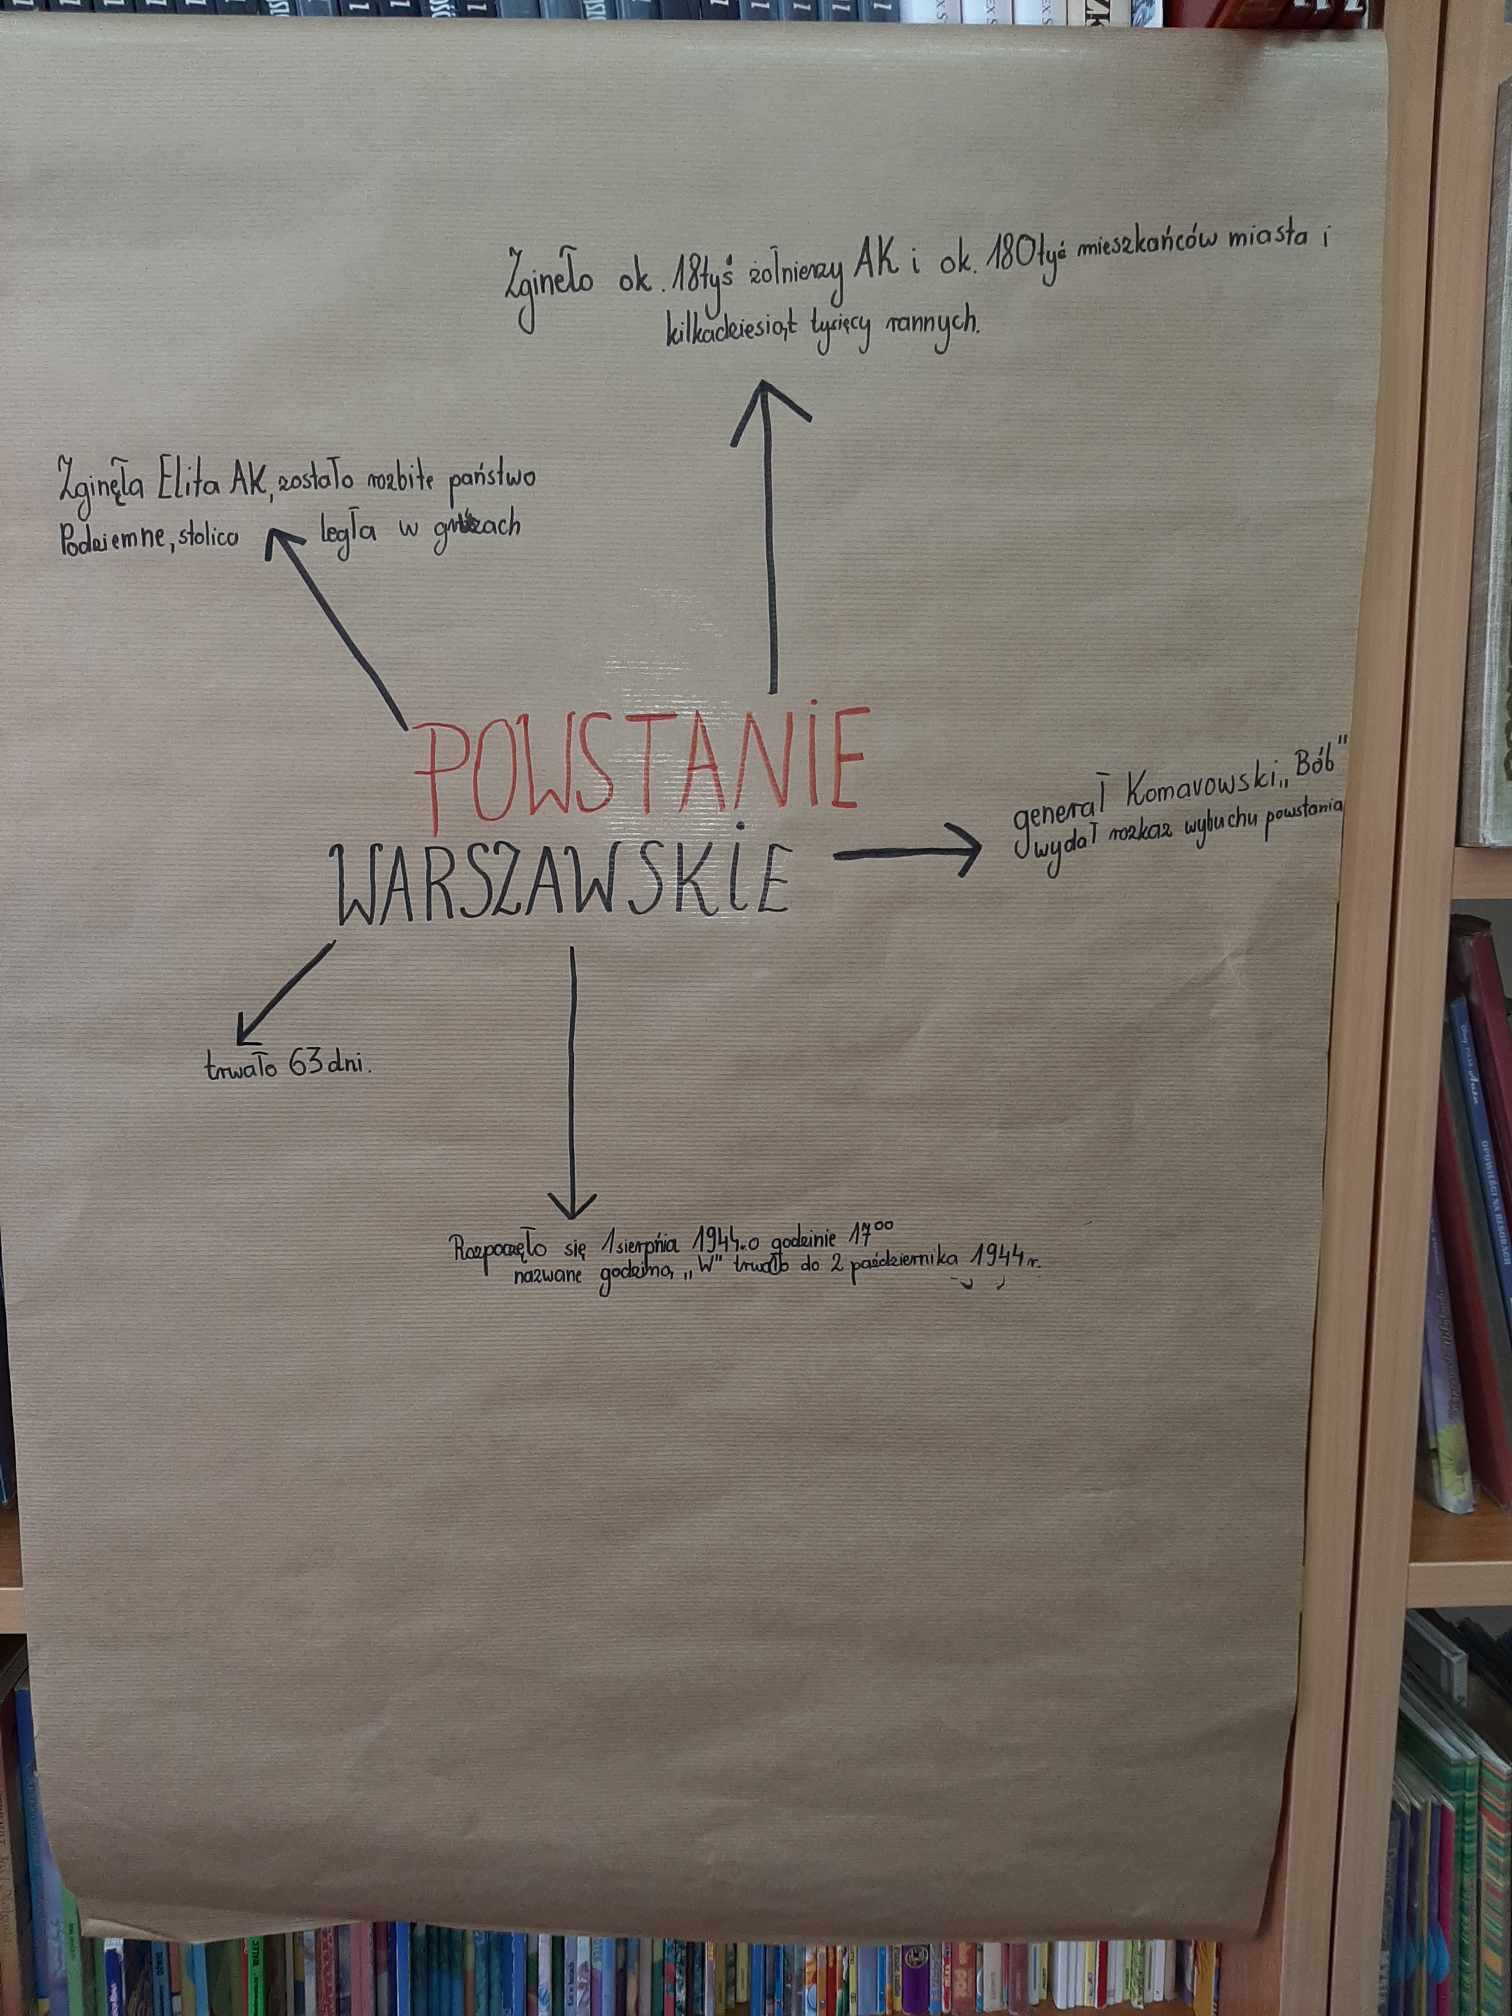 Zgineło ok. 18tyś żołnierzy AK i ok. 180tyś mieszkańców miasta i
kilkadziesiąt tysięcy rannych.
Zginęła Elita AK, zostało rozbite państwo
Podziemne, stolica legła w gruzach
POWSTANIE
WARSZAWSKIE
generał Komorowski „Bób"
wydał rozkaz wybuchu powstania
trwało 63 dni.
Rozpoczęło się 1 sierpńia 1944.o godzinie 17⁰⁰
nazwane godziną „W" trwało do 2 października 1944 r.